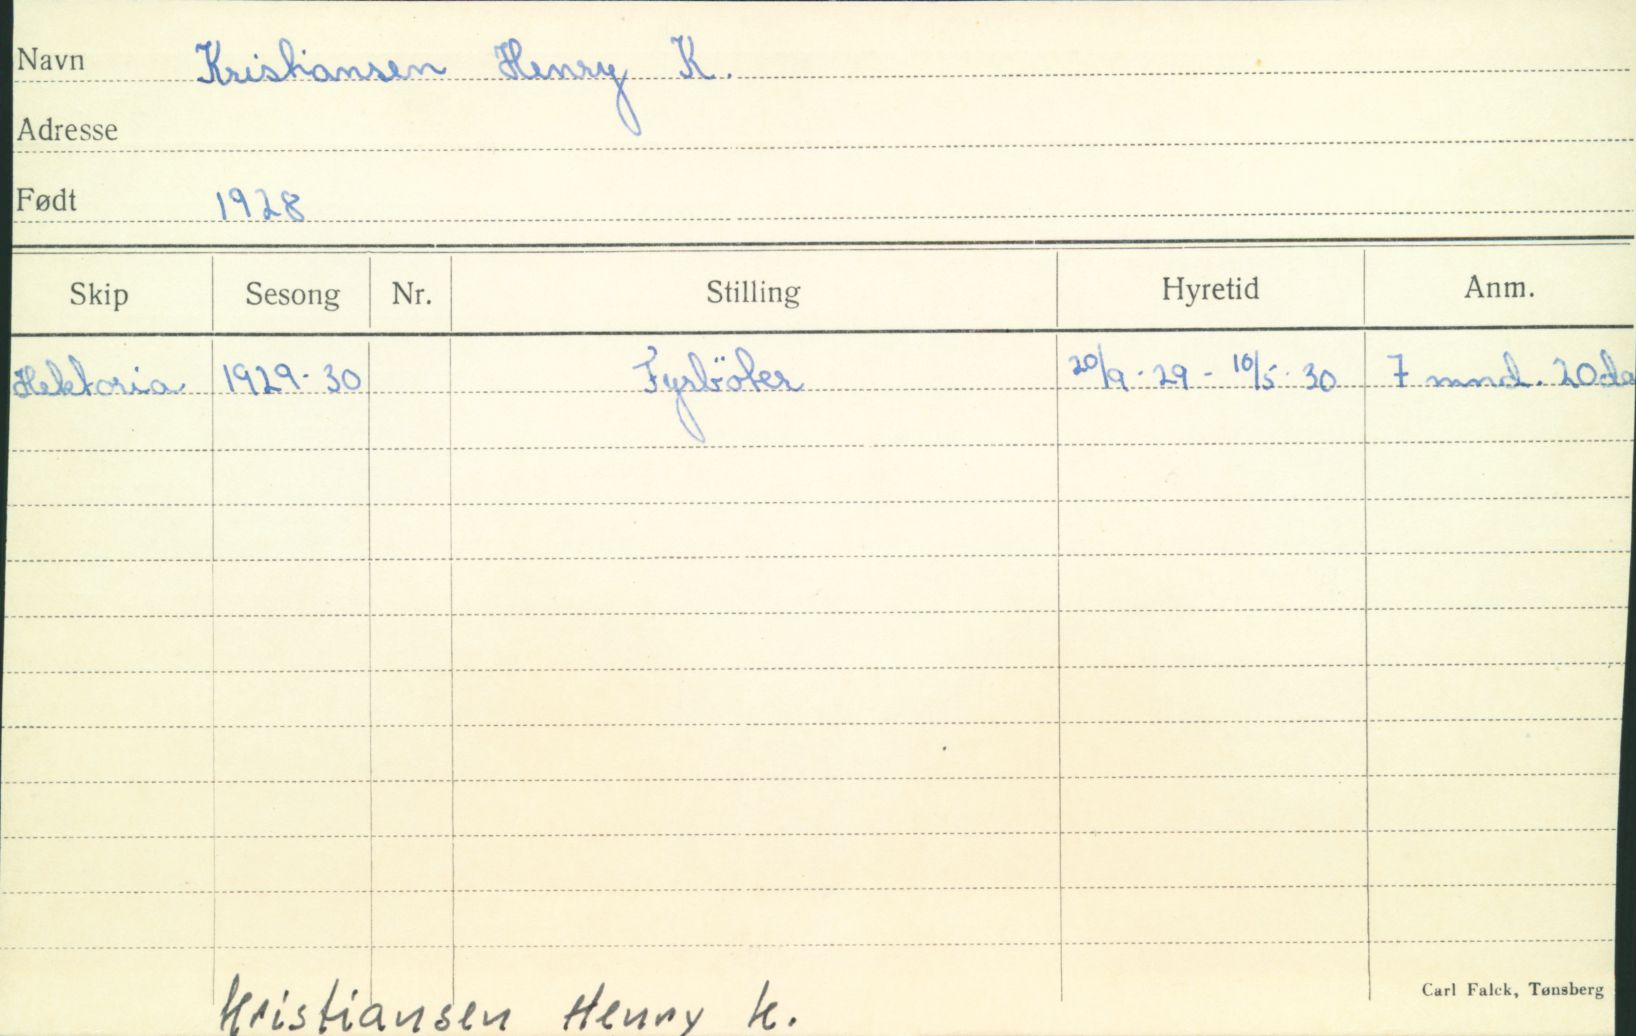 Navn Kristiansen Henry K.
Adresse
Født 1928
Skip Sesong Nr. Stilling Hyretid Anm.
Hektoria 1929-30 Fyrböter 20/9-29 - 10/5-30 7 mnd. 20da
Carl Falck, Tønsberg
Kristiansen Henry K.